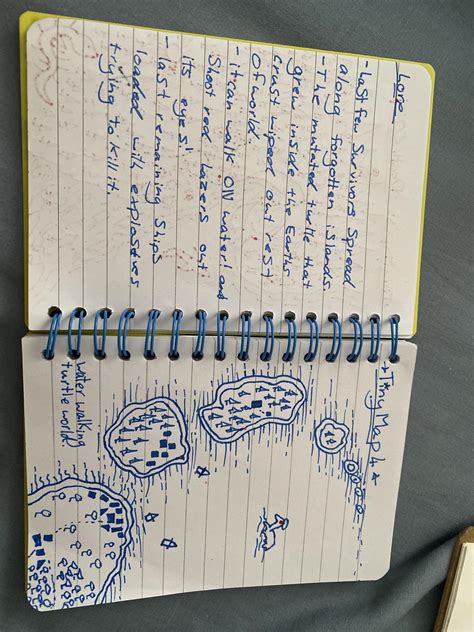 Lore
- Last few Survivors Spread
along forgotten islands
- The mutated turtle that
grew inside the Earths
crust wiped out rest
Of world.
- it can walk ON water! and
Shoot red lazers out
its eyes!
- last remaining Ships
loaded with explosives
trying to kill it.
Tiny Map 4
water walking
turtle world.